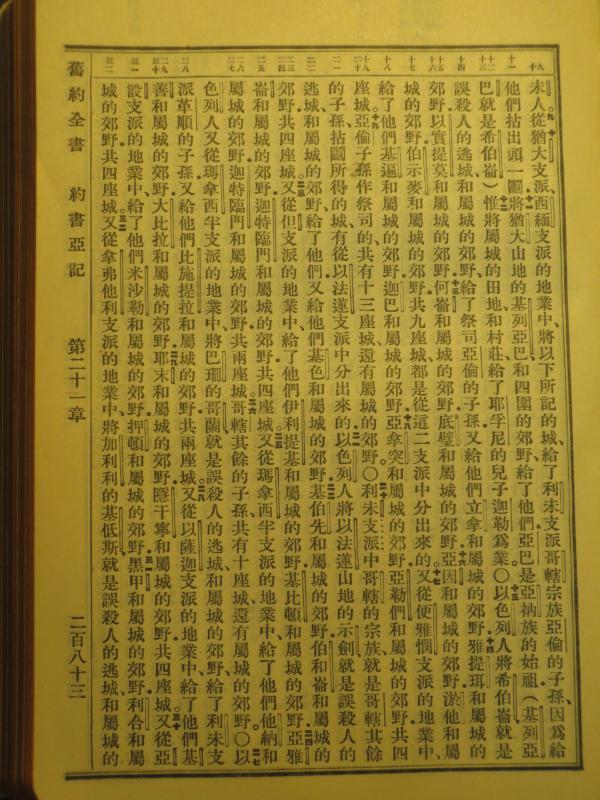 未人從猶大支派西緬支派的地業中、將以下所記的城給了利未支派哥轄宗族亞倫的子孫、因爲給
他們拈出頭一鬮將猶大山地的基列亞巴和四圍的郊野給了他們.亞巴是亞衲族的始祖（基列亞
巴就是希伯崙）惟將屬城的田地和村莊給了耶孚尼的兒子迦勒爲業○以色列人將希伯崙就是
誤殺人的逃城和屬城的郊野給了祭司亞倫的子孫又給他們立拿和屬城的郊野.雅提珥和屬城的
郊野.以實提莫和屬城的郊野.何崙和屬城的郊野.底璧和屬城的郊野.亞因和屬城的郊野.淤他和屬
城的郊野.伯示麥和屬城的郊野.共九座城都是從這二支派中分出來的.又從便雅憫支派的地業中、
給了他們基遍和屬城的郊野.迦巴和屬城的郊野.亞拿突和屬城的郊野.亞勒們和屬城的郊野.共四
座城.亞倫子孫作祭司的、共有十三座城還有屬城的郊野○利未支派中哥轄的宗族就是哥轄其餘
的子孫拈鬮所得的城、有從以法蓮支派中分出來的.以色列人將以法蓮山地的示劍就是誤殺人的
逃城和屬城的郊野給了他們又給他們基色和屬城的郊野.基伯先和屬城的郊野.伯和崙和屬城的
郊野.共四座城.又從但支派的地業中、給了他們伊利提基和屬城的郊野.基比頓和屬城的郊野.亞雅
崙和屬城的郊野.迦特臨門和屬城的郊野.共四座城.又從瑪拿西半支派的地業中、給了他們他納和
屬城的郊野.迦特臨門和屬城的郊野.共兩座城.哥轄其餘的子孫共有十座城、還有屬城的郊野○以
色列人又從瑪拿西半支派的地業中將巴珊的哥蘭就是誤殺人的逃城和屬城的郊野給了利未支
派革順的子孫又給他們比施提拉和屬城的郊野.共兩座城.又從以薩迦支派的地業中、給了他們基
善和屬城的郊野.大比拉和屬城的郊野.耶末和屬城的郊野.隱干寧和屬城的郊野.共四座城.又從亞
設支派的地業中、給了他們米沙勒和屬城的郊野.押頓和屬城的郊野.黑甲和屬城的郊野.利合和屬
城的郊野.共四座城.又從拿弗他利支派的地業中、將加利利的基低斯就是誤殺人的逃城和屬城的
舊約全書 約書亞記 第二十一章 二百八十三